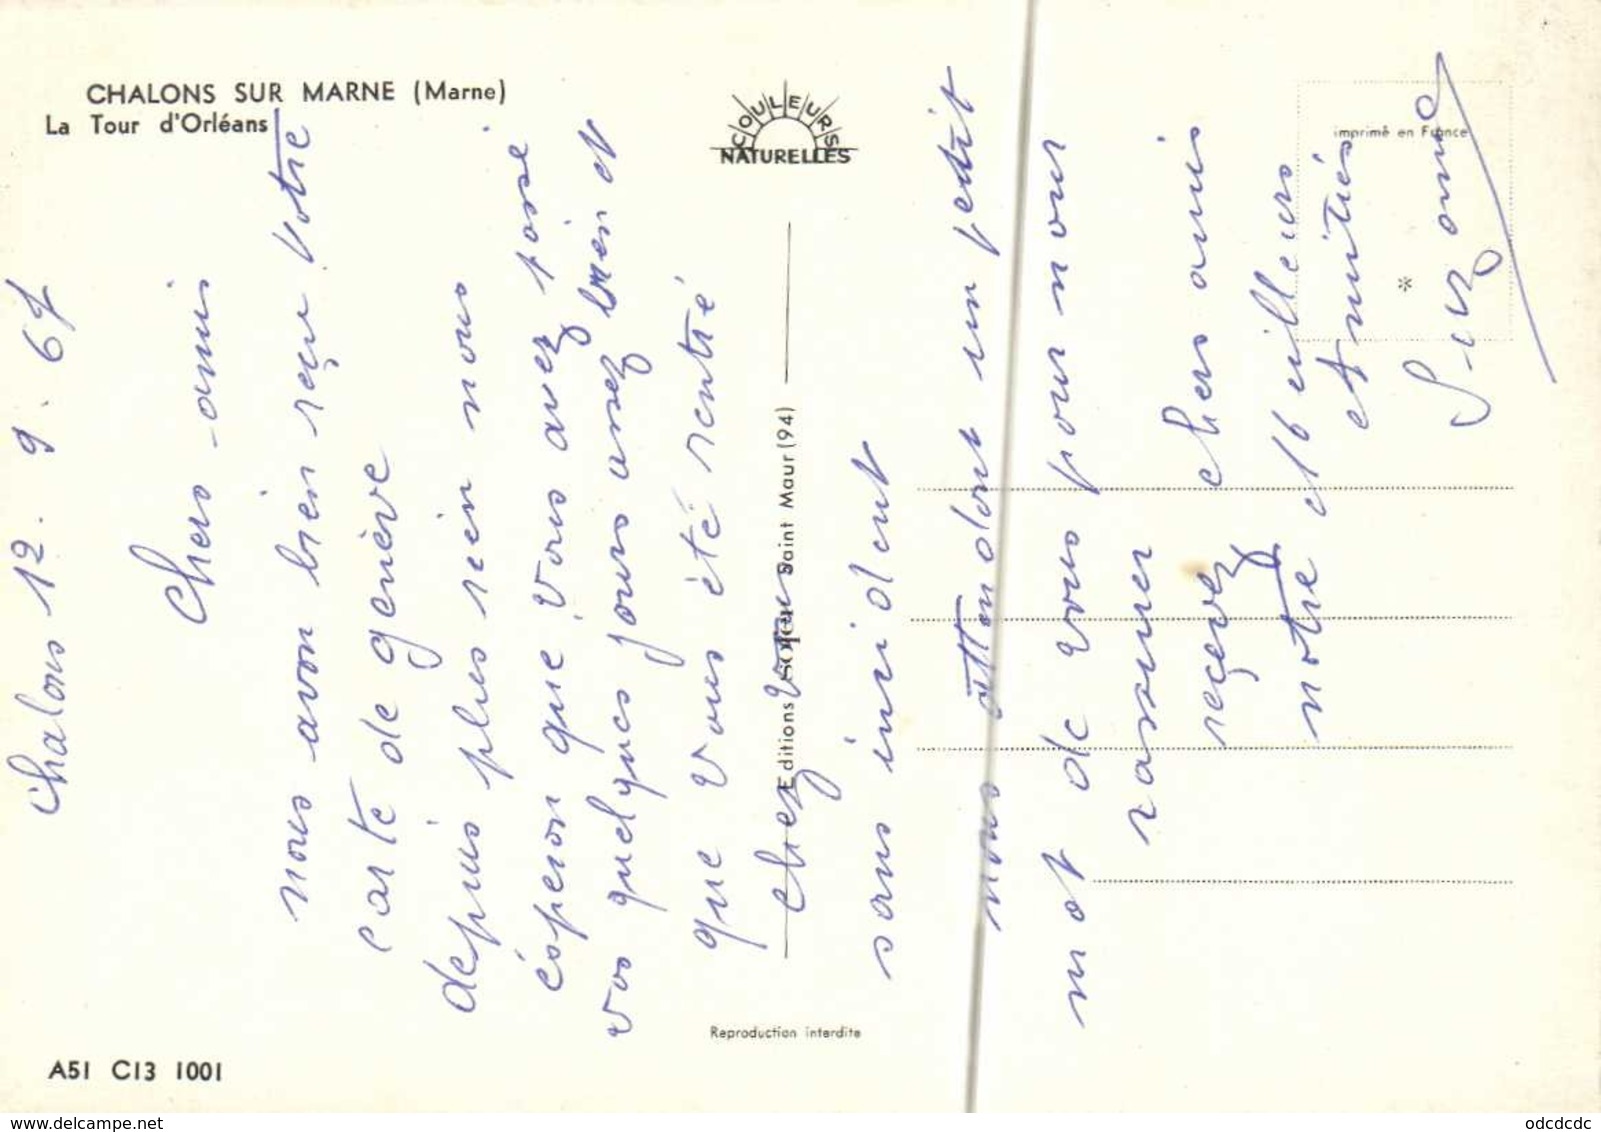 CHALONS SUR MARNE (Marne)
La Tour d'Orléans
COULEURS
NATURELLES
imprimé en France
Editions SOFER Saint Maur (94)
Reproduction interdite
A51 C13 1001
Chalons 12. 9. 67
Chers amis
nous avon bien reçu votre
carte de genève
depuis plus rien nous
ésperon que vous avez passé
vos quelques jours assez bien et
que vous été rentré
chez vous
sans incident
nous attendons un petit
mot de vous pour nous
rassurer
recevez chers amis
notre meilleurs
et Amitiés
Suzanne
www.delcampe.net
odcdcdc